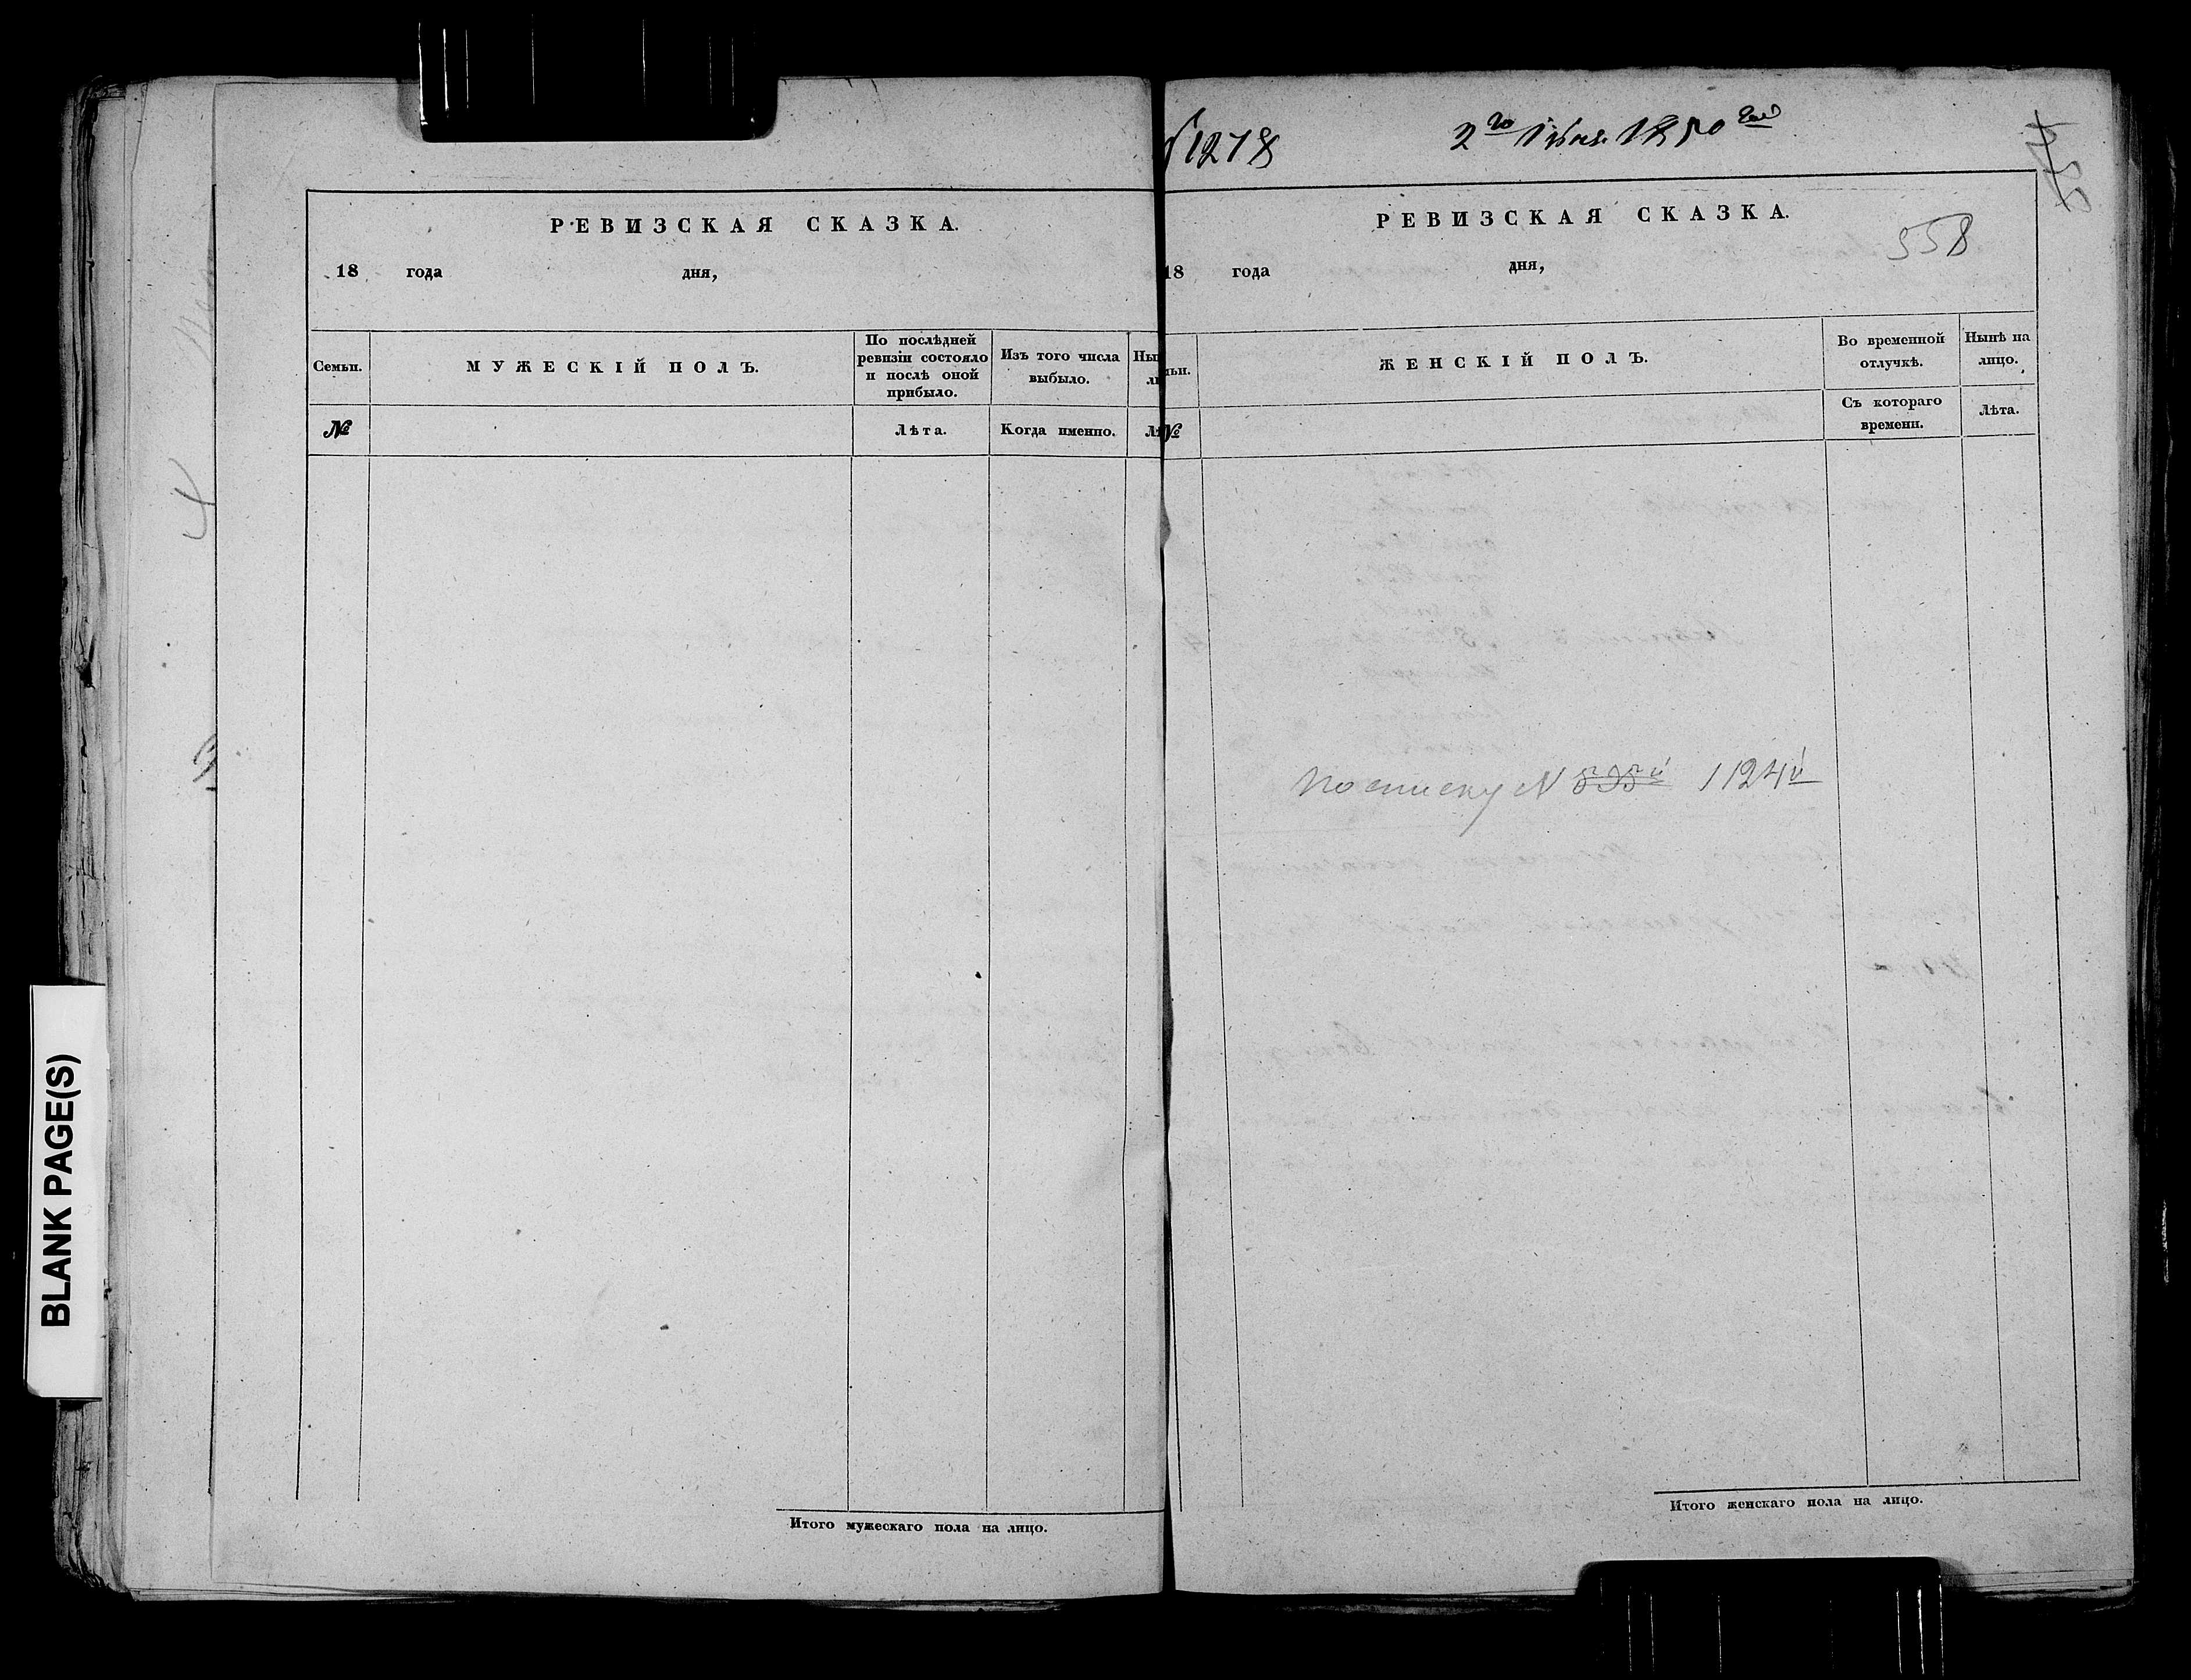 РЕВИЗСКАЯ СКАЗКА.
18 года дня,
Семьи.
МУЖЕСКІЙ ПОЛЪ.
По послѣдней ревизіи состояло и послѣ оной прибыло.
Изъ того числа выбыло.
Ны
№
Лѣта.
Когда именно.
Лѣ
Итого мужескаго пола на лицо.
BLANK PAGE(S)
1278
2го 1850 год
РЕВИЗСКАЯ СКАЗКА.
558
18 года дня,
ьи.
ЖЕНСКІЙ ПОЛЪ.
Во временной отлучкѣ.
Нынѣ на лицо.
№
Съ котораго времени.
Лѣта.
По списку N 595й 1124й
Итого женскаго пола на лицо.